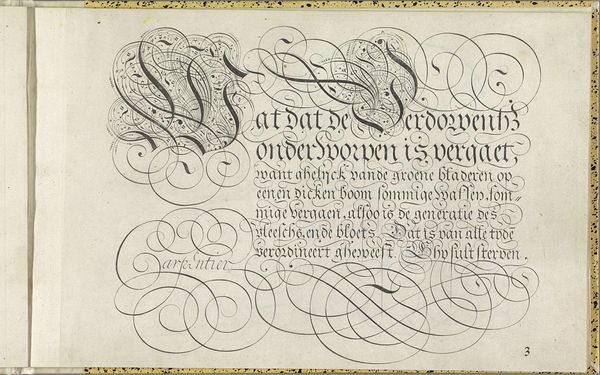 Wat dat de Verdorventh3
onderworpen is, vergaet,
want ghelyck vande groene bladeren op
eenen dicken boom sommige wassen, som-
mige vergaen, alsoo is de generatie des
vleeschs, ende bloets. Dat is van alle tyde
verordineert gheweest. Ghy sult sterven.
Carpentier
3